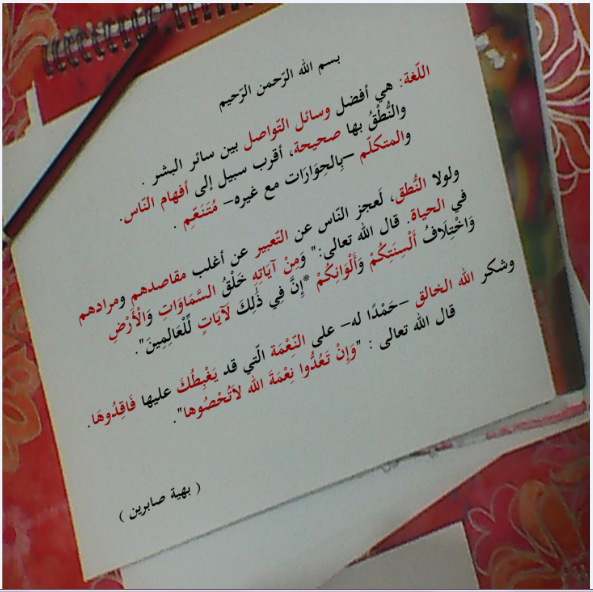 بسم الله الرّحمن الرّحيم
اللّغة: هي أفضل وسائل التّواصل بين سائر البشر .
والنُّطْقُ بها صحيحة، أقرب سبيل إلى أفهام النّاس.
والمتكلّم –بِالحِوَارَات مع غيره– مُتَنَعِّم .
ولولا النُّطق، لَعجز النّاس عن التّعبير عن أغلب مقاصدهم ومرادهم
في الحياة. قال الله تعالى:" وَمِنْ آيَاتِهِ خَلْقُ السَّمَاوَاتِ وَالْأَرْضِ
وَاخْتِلَافُ أَلْسِنَتِكُمْ وَأَلْوَانِكُمْ *إِنَّ فِي ذَلِكَ لَآيَاتٍ لِّلْعَالِمِينَ".
وشكر الله الخالق –حَمْدًا له– على النّعْمَة الّتي قد يَغْبِطُكَ عليها فَاقِدُوهَا.
قال الله تعالى : "وَإِنْ تَعُدُّوا نِعْمَةَ الله لاَتُحْصُوها".
( بهية صابرين )